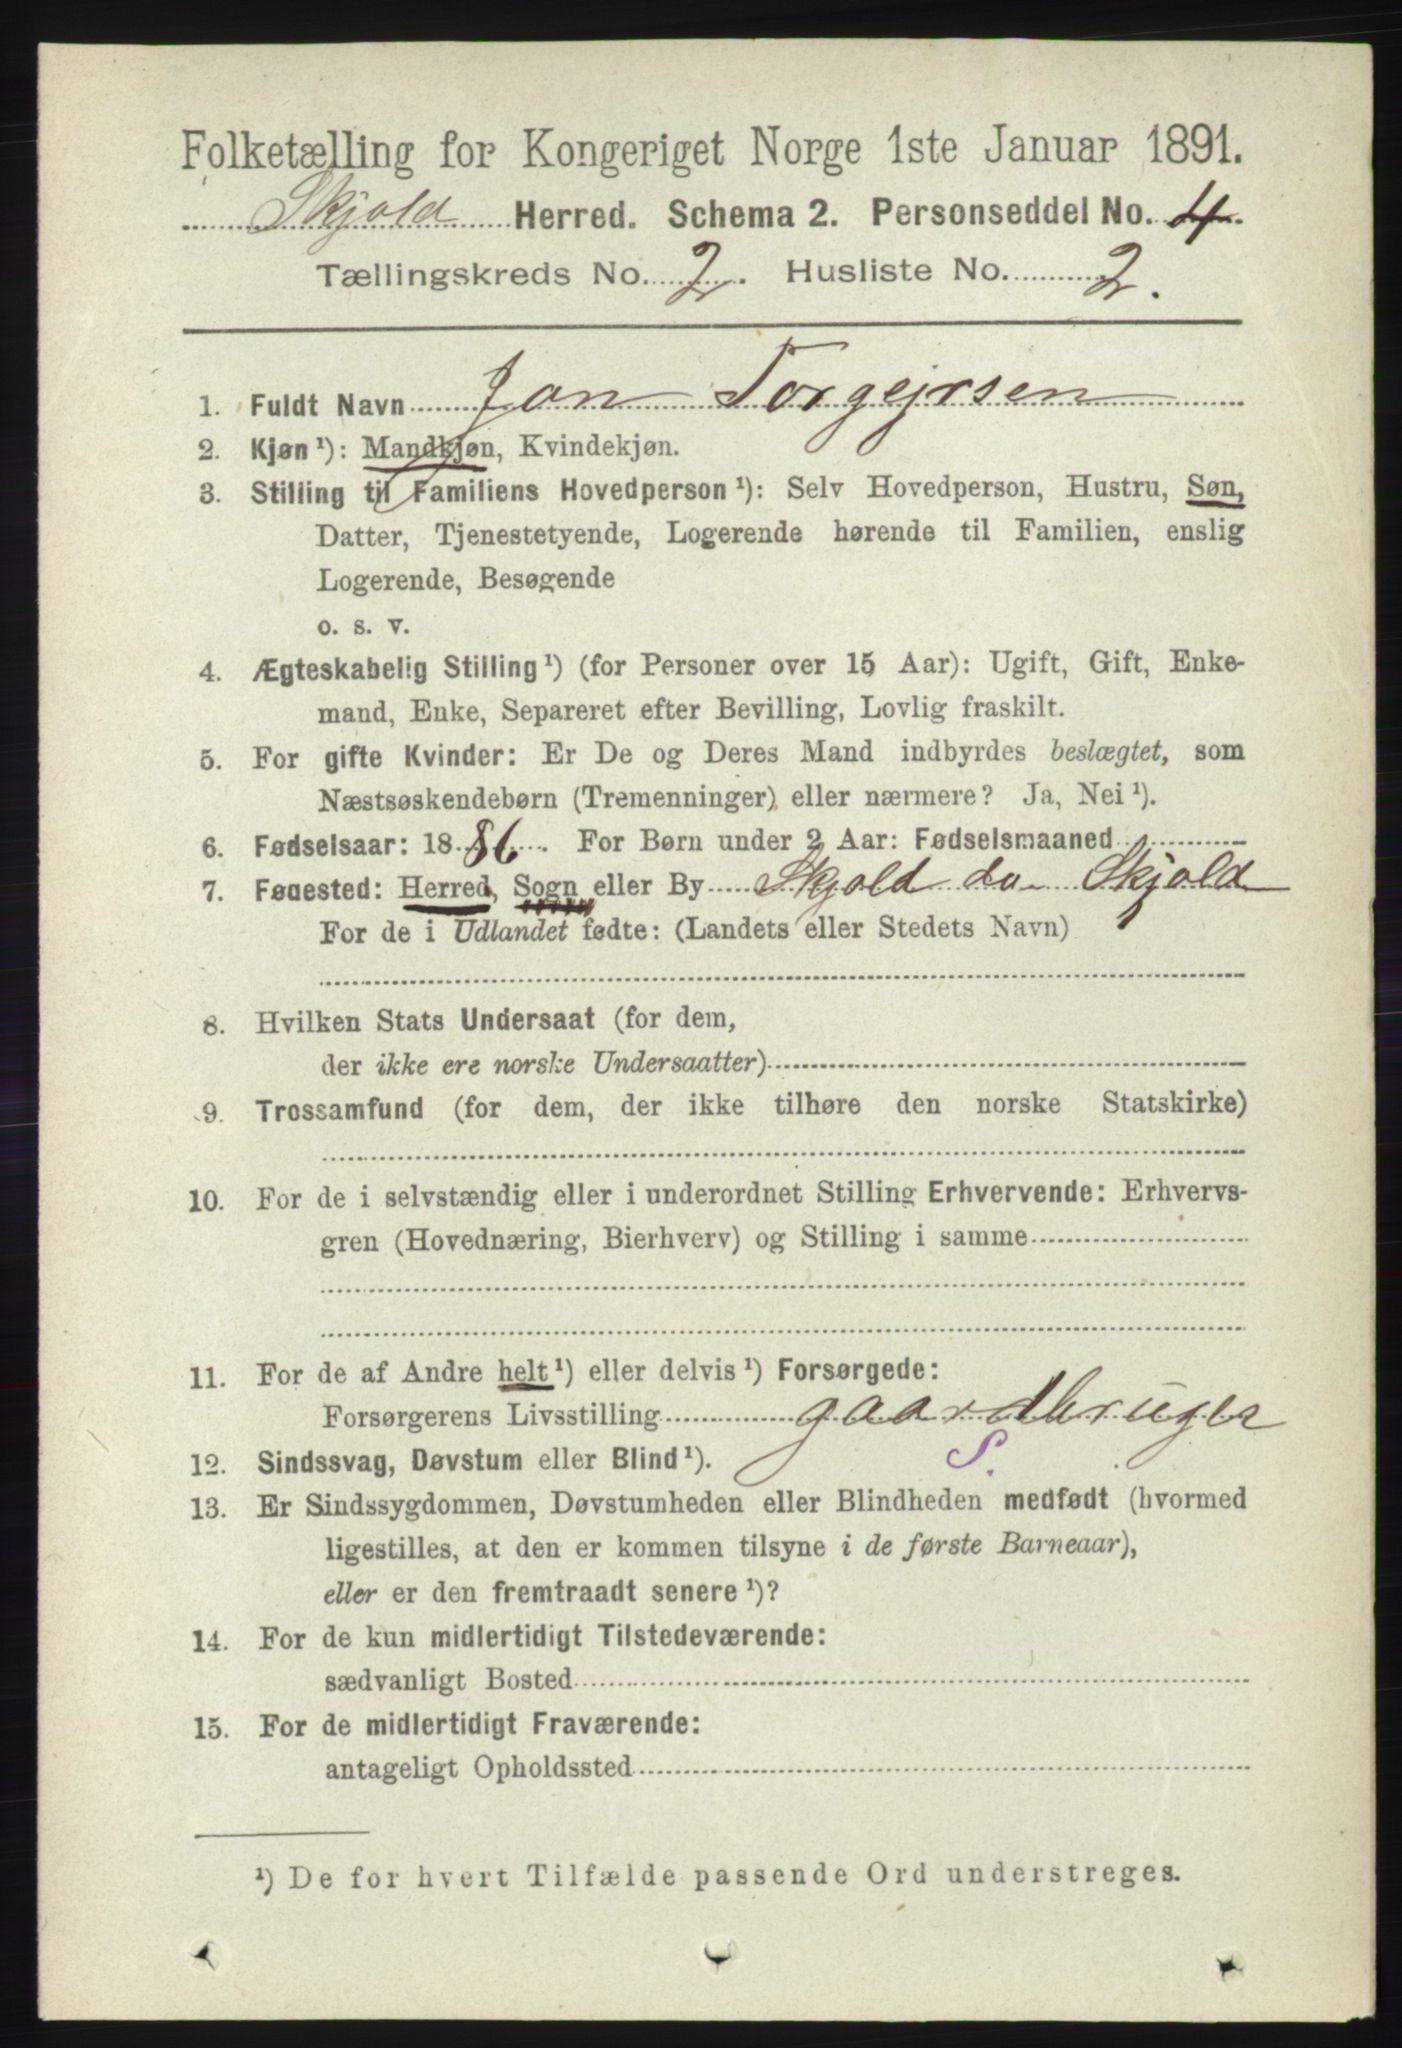 Folketælling for Kongeriget Norge 1ste Januar 1891.
Skjold Herred. Schema 2. Personseddel No. 4.
Tællingskreds No. 2. Husliste No. 2.
1. Fuldt Navn Jon Torgejrsen
2. Kjøn ¹): Mandkjøn, Kvindekjøn.
3. Stilling til Familiens Hovedperson ¹): Selv Hovedperson, Hustru, Søn,
Datter, Tjenestetyende, Logerende hørende til Familien, enslig
Logerende, Besøgende
o. s. v.
4. Ægteskabelig Stilling ¹) (for Personer over 15 Aar): Ugift, Gift, Enke-
mand, Enke, Separeret efter Bevilling, Lovlig fraskilt.
5. For gifte Kvinder: Er De og Deres Mand indbyrdes beslægtet, som
Næstsøskendebørn (Tremenninger) eller nærmere? Ja, Nei ¹).
6. Fødselsaar: 1886. For Børn under 2 Aar: Fødselsmaaned
7. Fødested: Herred, Sogn eller By Skjold do Skjold
For de i Udlandet fødte: (Landets eller Stedets Navn)
8. Hvilken Stats Undersaat (for dem,
der ikke ere norske Undersaatter)
9. Trossamfund (for dem, der ikke tilhøre den norske Statskirke)
10. For de i selvstændig eller i underordnet Stilling Erhvervende: Erhvervs-
gren (Hovednæring, Bierhverv) og Stilling i samme
11. For de af Andre helt ¹) eller delvis ¹) Forsørgede:
Forsørgerens Livsstilling gaardbruger
12. Sindssvag, Døvstum eller Blind ¹). S.
13. Er Sindssygdommen, Døvstumheden eller Blindheden medfødt (hvormed
ligestilles, at den er kommen tilsyne i de første Barneaar),
eller er den fremtraadt senere ¹)?
14. For de kun midlertidigt Tilstedeværende:
sædvanligt Bosted
15. For de midlertidigt Fraværende:
antageligt Opholdssted
¹) De for hvert Tilfælde passende Ord understreges.